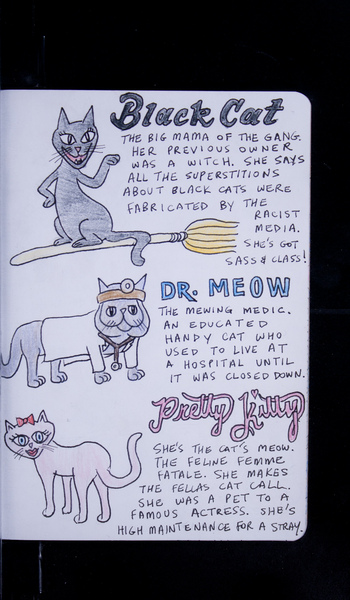 Black Cat
THE BIG MAMA OF THE GANG.
HER PREVIOUS OWNER
WAS A WITCH. SHE SAYS
ALL THE SUPERSTITIONS
ABOUT BLACK CATS WERE
FABRICATED BY THE
RACIST
MEDIA.
SHE'S GOT
SASS & CLASS!
DR. MEOW
THE MEWING MEDIC.
AN EDUCATED
HANDY CAT WHO
USED TO LIVE AT
A HOSPITAL UNTIL
IT WAS CLOSED DOWN.
Pretty Kitty
SHE'S THE CAT'S MEOW.
THE FELINE FEMME
FATALE. SHE MAKES
THE FELLAS CAT CALL.
SHE WAS A PET TO A
FAMOUS ACTRESS. SHE'S
HIGH MAINTENANCE FOR A STRAY.